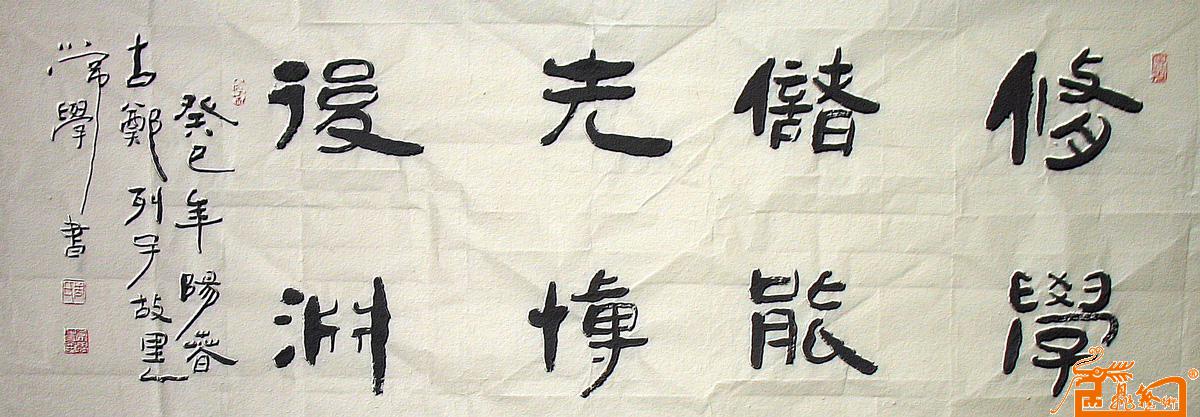 修學
儲能
先博
後淵
癸巳年陽春
古鄭列子故里
常學書